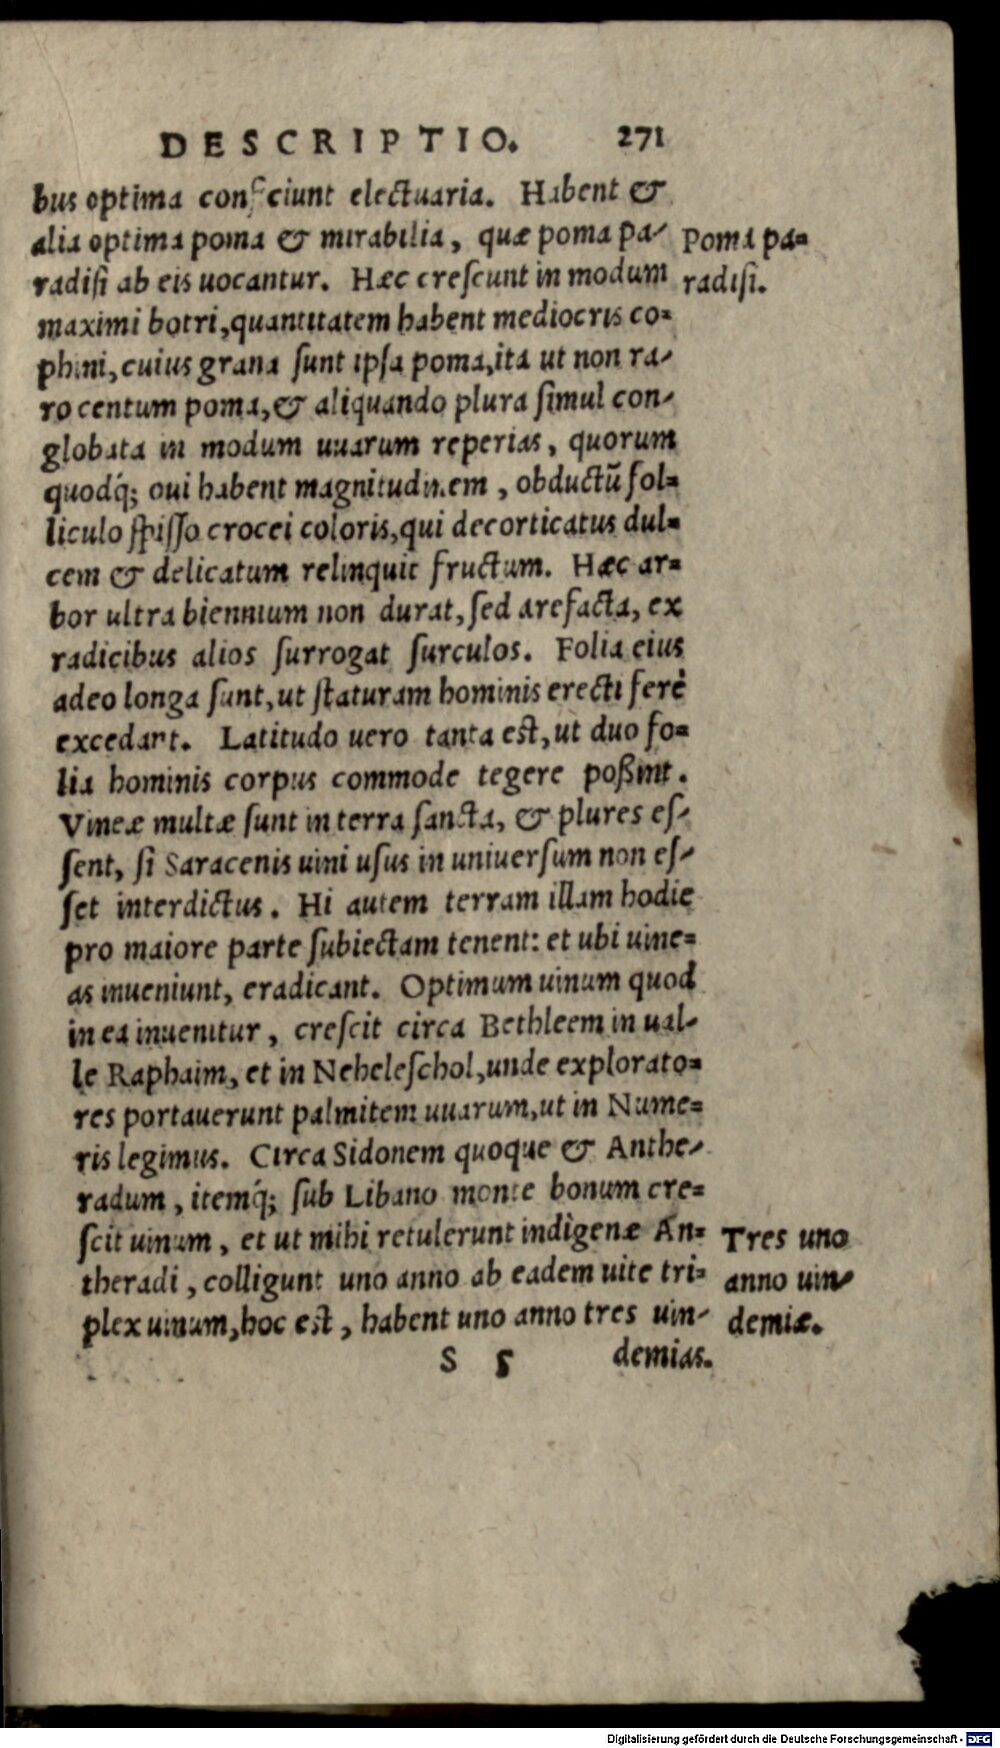 DESCRIPTIO. 271
bus optima conficiunt electuaria. Habent &
alia optima poma & mirabilia, quæ poma pa-
radiſi ab eis uocantur. Hæc creſcunt in modum
maximi botri, quantitatem habent mediocris co-
phini, cuius grana ſunt ipſa poma, ita ut non ra-
ro centum poma, & aliquando plura ſimul con-
globata in modum uuarum reperias, quorum
quodq́; oui habent magnitudinem, obductū fol-
liculo ſpiſſo crocei coloris, qui decorticatus dul-
cem & delicatum relinquit fructum. Hæc ar-
bor ultra biennium non durat, ſed arefacta, ex
radicibus alios ſurrogat ſurculos. Folia eius
adeo longa ſunt, ut ſtaturam hominis erecti ferè
excedant. Latitudo uero tanta eſt, ut duo fo-
lia hominis corpus commode tegere poßint.
Vineæ multæ ſunt in terra ſancta, & plures eſ-
ſent, ſi Saracenis uini uſus in uniuerſum non eſ-
ſet interdictus. Hi autem terram illam hodie
pro maiore parte ſubiectam tenent: et ubi uine-
as inueniunt, eradicant. Optimum uinum quod
in ea inuenitur, creſcit circa Bethleem in ual-
le Raphaim, et in Neheleſchol, unde explorato-
res portauerunt palmitem uuarum, ut in Nume-
ris legimus. Circa Sidonem quoque & Anthe-
radum, itemq́; ſub Libano monte bonum cre-
ſcit uinum, et ut mihi retulerunt indigenæ An-
theradi, colligunt uno anno ab eadem uite tri-
plex uinum, hoc eſt, habent uno anno tres uin-
S 5 demias.
Poma pa-
radiſi.
Tres uno
anno uin-
demiæ.
Digitalisierung gefördert durch die Deutsche Forschungsgemeinschaft - DFG